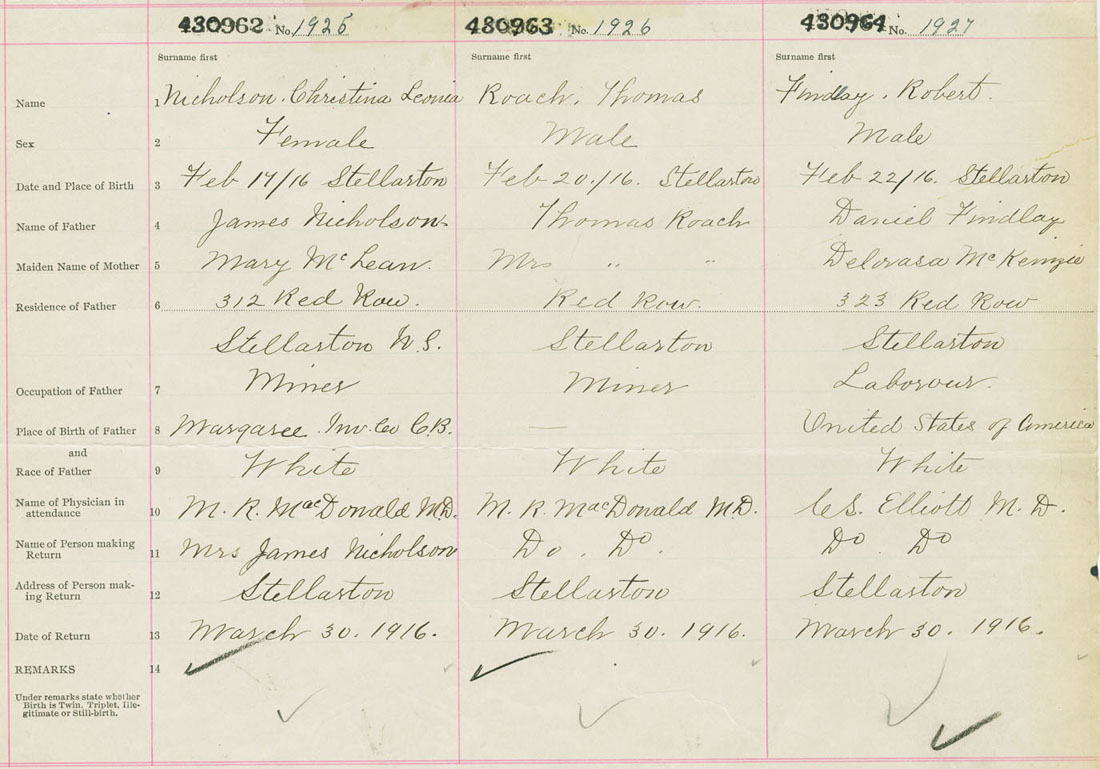 430962 No. 1925 430963 No. 1926 430964 No. 1927
Surname first Surname first Surname first
Name 1 Nicholson. Christina Leonia Roach. Thomas Findlay. Robert.
Sex 2 Female Male Male
Date and Place of Birth 3 Feb 17/16 Stellarton Feb 20./16. Stellarton Feb 22/16. Stellarton
Name of Father 4 James Nicholson Thomas Roach Daniel Findlay
Maiden Name of Mother 5 Mary McLean. Mrs " " McKenzie
Residence of Father 6 312 Red Row. Red Row. 323 Red Row
Stellarton N.S. Stellarton Stellarton
Occupation of Father 7 Miner Miner Laborour.
Place of Birth of Father 8 Margaree Inv. Co C.B. — United States of America
and
Race of Father 9 White White White
Name of Physician in
attendance 10 M. R. MacDonald M.D. M. R. MacDonald M.D. C S. Elliott M. D.
Name of Person making
Return 11 Mrs James Nicholson Do. Do. Do Do
Address of Person mak-
ing Return 12 Stellarton Stellarton Stellarton
Date of Return 13 March 30. 1916. March 30. 1916. March 30. 1916.
REMARKS 14
Under remarks state whether
Birth is Twin, Triplet, Ille-
gitimate or Still-birth.